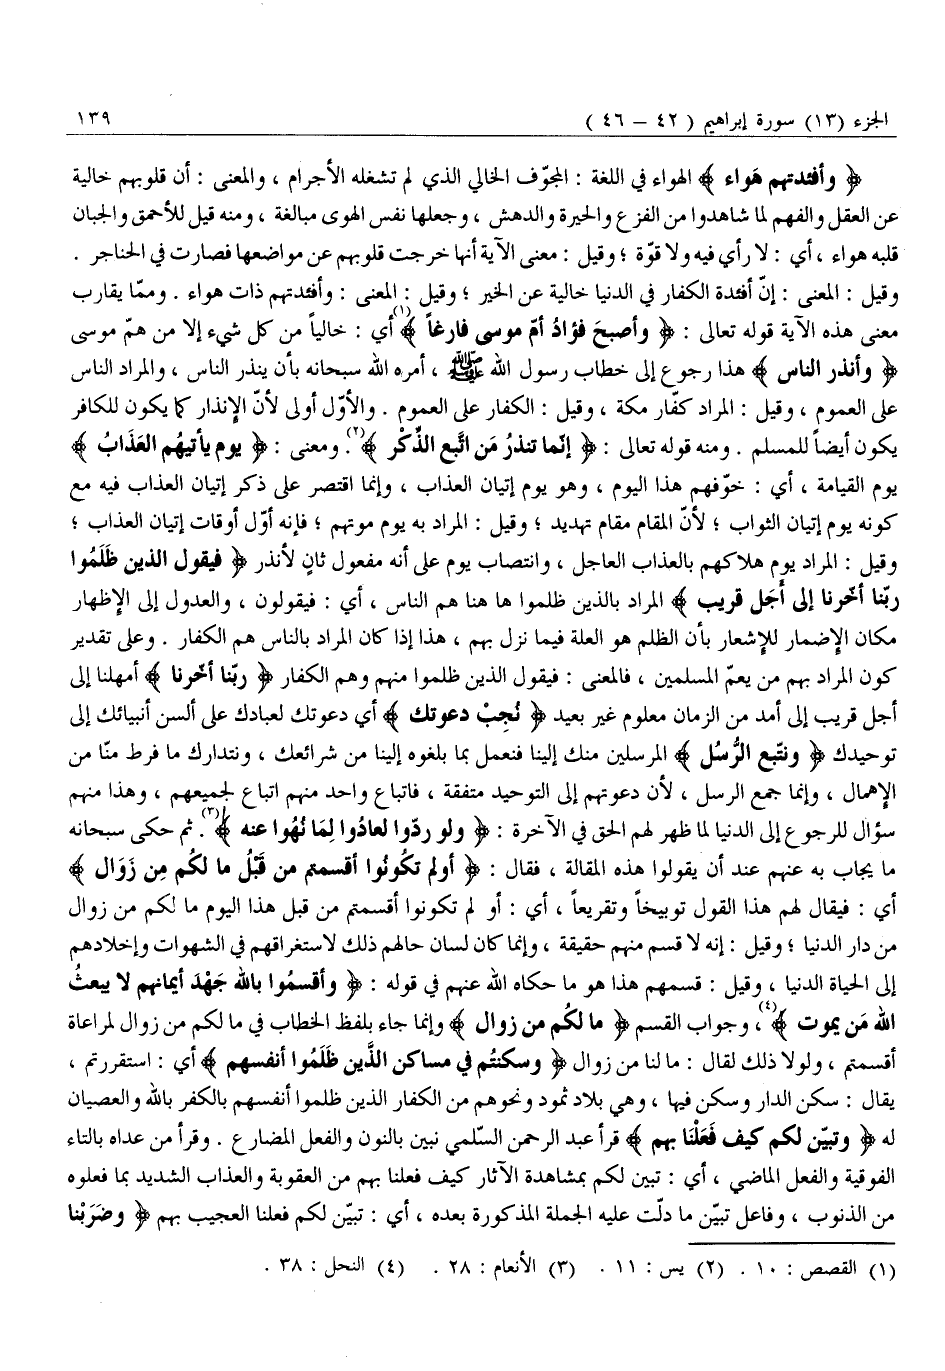 الجزء (١٣) سورة إبراهيم ( ٤٢ – ٤٦ ) ١٣٩
﴿ وأفئدتهم هَواء ﴾ الهواء في اللغة : المجوّف الخالي الذي لم تشغله الأجرام ، والمعنى : أن قلوبهم خالية
عن العقل والفهم لما شاهدوا من الفزع والحيرة والدهش ، وجعلها نفس الهوى مبالغة ، ومنه قيل للأحمق والجبان
قلبه هواء ، أي : لا رأي فيه ولا قوّة ؛ وقيل : معنى الآية أنها خرجت قلوبهم عن مواضعها فصارت في الحناجر .
وقيل : المعنى : إنّ أفئدة الكفار في الدنيا خالية عن الخير ؛ وقيل : المعنى : وأفئدتهم ذات هواء . وممّا يقارب
معنى هذه الآية قوله تعالى : ﴿ وأصبحَ فؤادُ أمّ موسى فارغاً ﴾(١) أي : خالياً من كل شيء إلا من همّ موسى
﴿ وأنذر الناس ﴾ هذا رجوع إلى خطاب رسول الله ﷺ ، أمره الله سبحانه بأن ينذر الناس ، والمراد الناس
على العموم ، وقيل : المراد كفّار مكة ، وقيل : الكفار على العموم . والأوّل أولى لأنّ الإنذار كما يكون للكافر
يكون أيضاً للمسلم . ومنه قوله تعالى : ﴿ إنّما تنذرُ مَن اتَّبع الذِّكْر ﴾(٢). ومعنى : ﴿ يوم يأتيهُم العَذَابُ ﴾
يوم القيامة ، أي : خوّفهم هذا اليوم ، وهو يوم إتيان العذاب ، وإنما اقتصر على ذكر إتيان العذاب فيه مع
كونه يوم إتيان الثواب ؛ لأنّ المقام مقام تهديد ؛ وقيل : المراد به يوم موتهم ؛ فإنه أوّل أوقات إتيان العذاب ؛
وقيل : المراد يوم هلاكهم بالعذاب العاجل ، وانتصاب يوم على أنه مفعول ثانٍ لأنذر ﴿ فيقول الذين ظَلَمُوا
ربّنا أخّرنا إلى أَجَل قريب ﴾ المراد بالذين ظلموا ها هنا هم الناس ، أي : فيقولون ، والعدول إلى الإظهار
مكان الإضمار للإشعار بأن الظلم هو العلة فيما نزل بهم ، هذا إذا كان المراد بالناس هم الكفار . وعلى تقدير
كون المراد بهم من يعمّ المسلمين ، فالمعنى : فيقول الذين ظلموا منهم وهم الكفار ﴿ ربّنا أخّرنا ﴾ أمهلنا إلى
أجل قريب إلى أمد من الزمان معلوم غير بعيد ﴿ نُجِبْ دعوتك ﴾ أي دعوتك لعبادك على ألسن أنبيائك إلى
توحيدك ﴿ ونتّبع الرُّسُل ﴾ المرسلين منك إلينا فنعمل بما بلغوه إلينا من شرائعك ، ونتدارك ما فرط منّا من
الإهمال ، وإنما جمع الرسل ، لأن دعوتهم إلى التوحيد متفقة ، فاتباع واحد منهم اتباع لجميعهم ، وهذا منهم
سؤال للرجوع إلى الدنيا لما ظهر لهم الحق في الآخرة : ﴿ ولو ردّوا لعادُوا لِمَا نُهُوا عنه ﴾(٣). ثم حكى سبحانه
ما يجاب به عنهم عند أن يقولوا هذه المقالة ، فقال : ﴿ أولم تكونُوا أقسمتم من قَبْلُ ما لكُم مِن زَوَال ﴾
أي : فيقال لهم هذا القول توبيخاً وتقريعاً ، أي : أو لم تكونوا أقسمتم من قبل هذا اليوم ما لكم من زوال
من دار الدنيا ؛ وقيل : إنه لا قسم منهم حقيقة ، وإنما كان لسان حالهم ذلك لاستغراقهم في الشهوات وإخلادهم
إلى الحياة الدنيا ، وقيل : قسمهم هذا هو ما حكاه الله عنهم في قوله : ﴿ وأقسمُوا بالله جَهْدَ أيمانهم لا يبعثُ
الله مَن يموت ﴾(٤) ، وجواب القسم ﴿ ما لكُم من زوال ﴾ وإنما جاء بلفظ الخطاب في ما لكم من زوال لمراعاة
أقسمتم ، ولولا ذلك لقال : ما لنا من زوال ﴿ وسكنتُم في مساكن الذَّين ظَلَمُوا أنفسهم ﴾ أي : استقررتم ،
يقال : سكن الدار وسكن فيها ، وهي بلاد ثمود ونحوهم من الكفار الذين ظلموا أنفسهم بالكفر بالله والعصيان
له ﴿ وتبيّن لكم كيف فَعَلْنا بهم ﴾ قرأ عبد الرحمن السّلمي نبين بالنون والفعل المضارع . وقرأ من عداه بالتاء
الفوقية والفعل الماضي ، أي : تبين لكم بمشاهدة الآثار كيف فعلنا بهم من العقوبة والعذاب الشديد بما فعلوه
من الذنوب ، وفاعل تبيّن ما دلّت عليه الجملة المذكورة بعده ، أي : تبيّن لكم فعلنا العجيب بهم ﴿ وضَرَبْنا
(١) القصص : ١٠ . (٢) يس : ١١ . (٣) الأنعام : ٢٨ . (٤) النحل : ٣٨ .